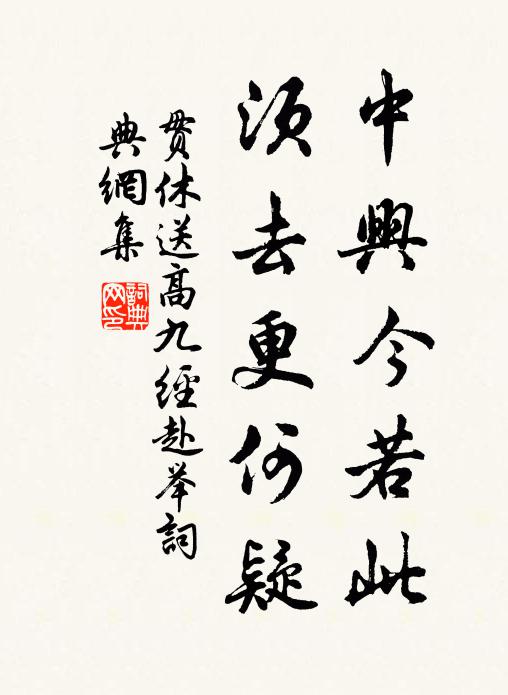 中興今若此
須去更何疑
貫休送高九經赴举詞
典網集
詞典
网印